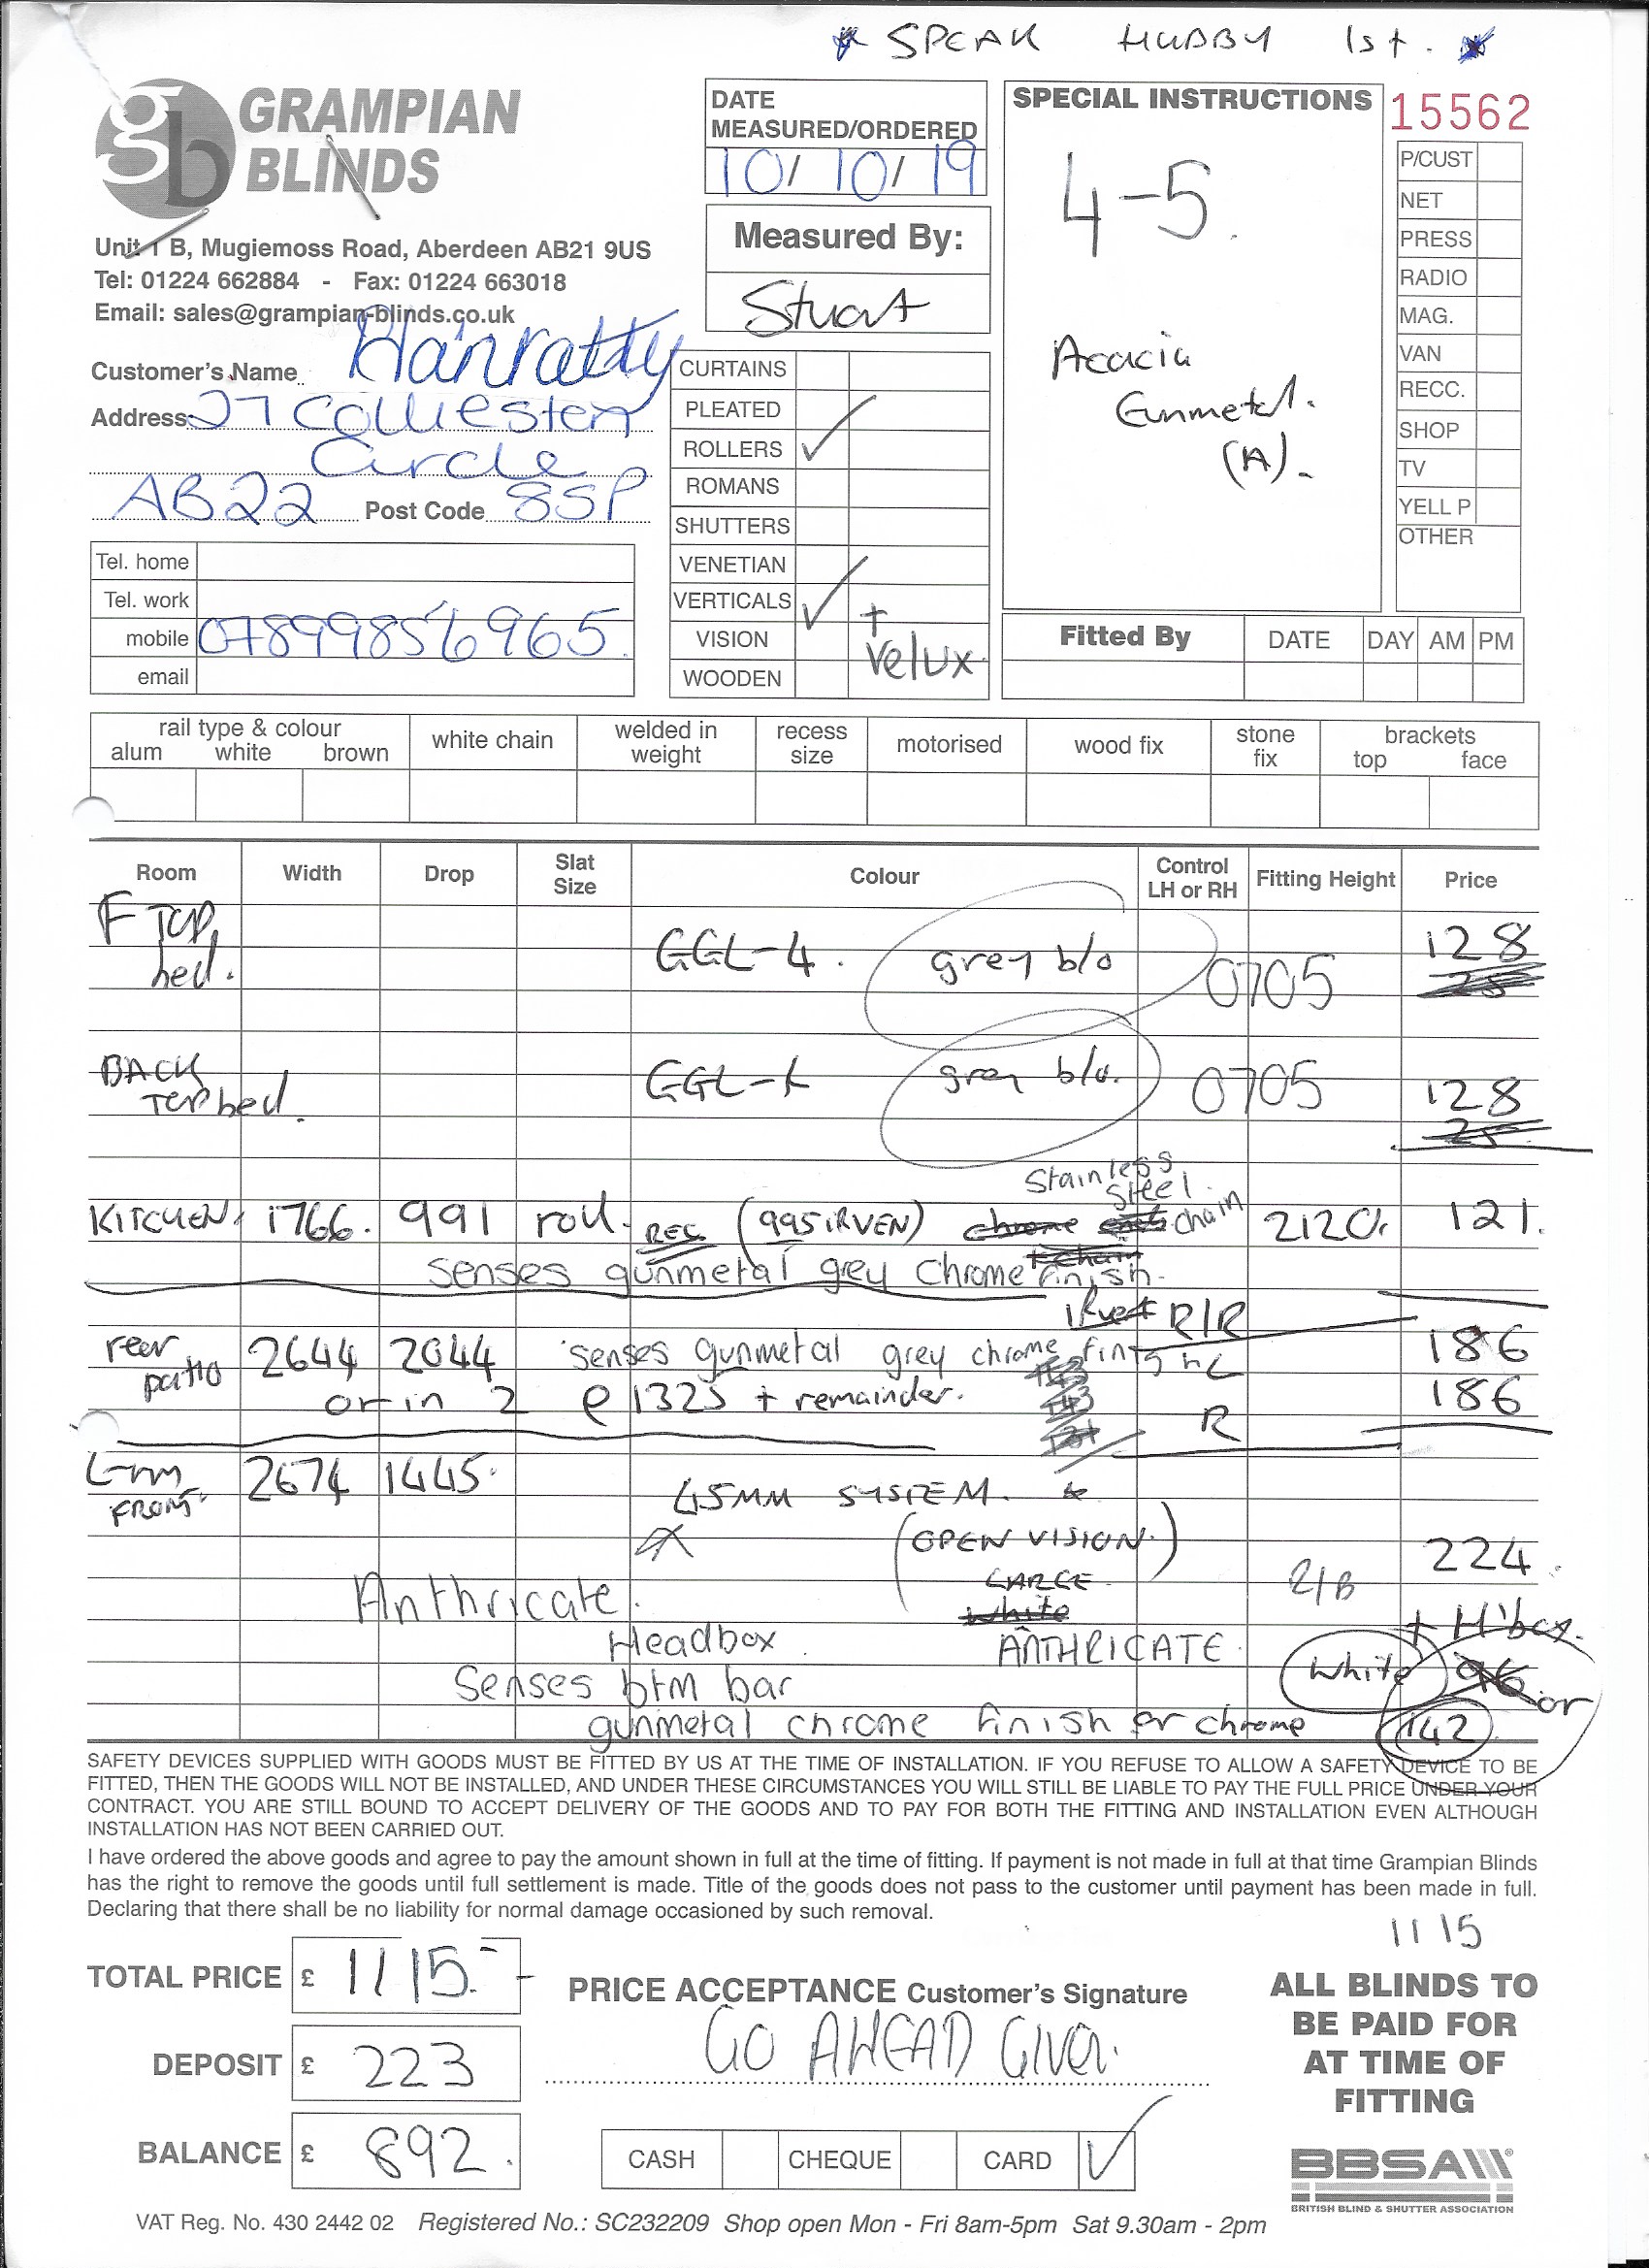 * SPEAK HUBBY 1st. *
gb GRAMPIAN
BLINDS
Unit 1 B, Mugiemoss Road, Aberdeen AB21 9US
Tel: 01224 662884 - Fax: 01224 663018
Email: sales@grampian-blinds.co.uk
DATE
MEASURED/ORDERED
10/ 10/ 19
Measured By:
Stuart
SPECIAL INSTRUCTIONS
4-5.
Acacia
Gunmetal.
(A).
15562
P/CUST
NET
PRESS
RADIO
MAG.
VAN
RECC.
SHOP
TV
YELL P
OTHER
Customer's Name Hanratty
Address 27 Collieston
Circle
AB22 Post Code 8SP
Tel. home
Tel. work
mobile 07899856965.
email
CURTAINS
PLEATED
ROLLERS ✓
ROMANS
SHUTTERS
VENETIAN
VERTICALS ✓ +
VISION Velux.
WOODEN
Fitted By DATE DAY AM PM
rail type & colour
alum white brown
white chain
welded in
weight
recess
size
motorised
wood fix
stone
fix
brackets
top face
Room Width Drop Slat Size Colour Control LH or RH Fitting Height Price
F TOP GGL-4. grey b/o 0705 128
bed. 25
BACK GGL- grey b/o. 0705 128
TOP bed. 25
Stainless
Steel
KITCHEN 1766. 991 roll. REC (995 IRVEN) chrome chain 2120. 121.
chain
senses gunmetal grey chrome finish.
R/R
rear patio 2644 2044 senses gunmetal grey chrome finish L 186
or in 2 @ 1325 + remainder. R 186
L-rm 2674 1445.
FRONT
45MM SYSTEM. *
(OPEN VISION.) 224.
LARGE R/B
Anthricate. white + H'box.
Headbox ANTHRICATE. white 96 or
Senses btm bar
gunmetal chrome finish or chrome 142
SAFETY DEVICES SUPPLIED WITH GOODS MUST BE FITTED BY US AT THE TIME OF INSTALLATION. IF YOU REFUSE TO ALLOW A SAFETY DEVICE TO BE
FITTED, THEN THE GOODS WILL NOT BE INSTALLED, AND UNDER THESE CIRCUMSTANCES YOU WILL STILL BE LIABLE TO PAY THE FULL PRICE UNDER YOUR
CONTRACT. YOU ARE STILL BOUND TO ACCEPT DELIVERY OF THE GOODS AND TO PAY FOR BOTH THE FITTING AND INSTALLATION EVEN ALTHOUGH
INSTALLATION HAS NOT BEEN CARRIED OUT.
I have ordered the above goods and agree to pay the amount shown in full at the time of fitting. If payment is not made in full at that time Grampian Blinds
has the right to remove the goods until full settlement is made. Title of the goods does not pass to the customer until payment has been made in full.
Declaring that there shall be no liability for normal damage occasioned by such removal.
1115
TOTAL PRICE £ 1115.-
DEPOSIT £ 223
BALANCE £ 892.
PRICE ACCEPTANCE Customer's Signature
GO AHEAD Given.
CASH CHEQUE CARD ✓
ALL BLINDS TO
BE PAID FOR
AT TIME OF
FITTING
BBSA
BRITISH BLIND & SHUTTER ASSOCIATION
VAT Reg. No. 430 2442 02 Registered No.: SC232209 Shop open Mon - Fri 8am-5pm Sat 9.30am - 2pm